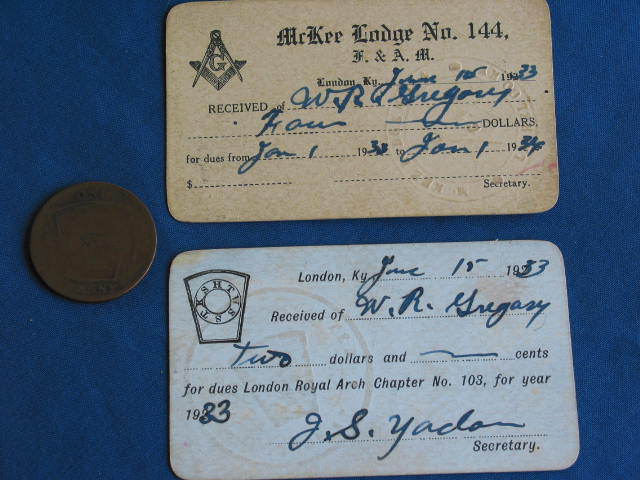 McKee Lodge No. 144,
F. & A. M.
G
London, Ky. June 15 1933
RECEIVED of W. R. Gregory
Four DOLLARS,
for dues from Jan 1 1933 to Jan 1 1934
$ Secretary.
London, Ky. June 15 1933
HTWSSTKS
Received of W. R. Gregory
Two dollars and cents
for dues London Royal Arch Chapter No. 103, for year
1933
J. S. Yadon
Secretary.
ONE
PENNY